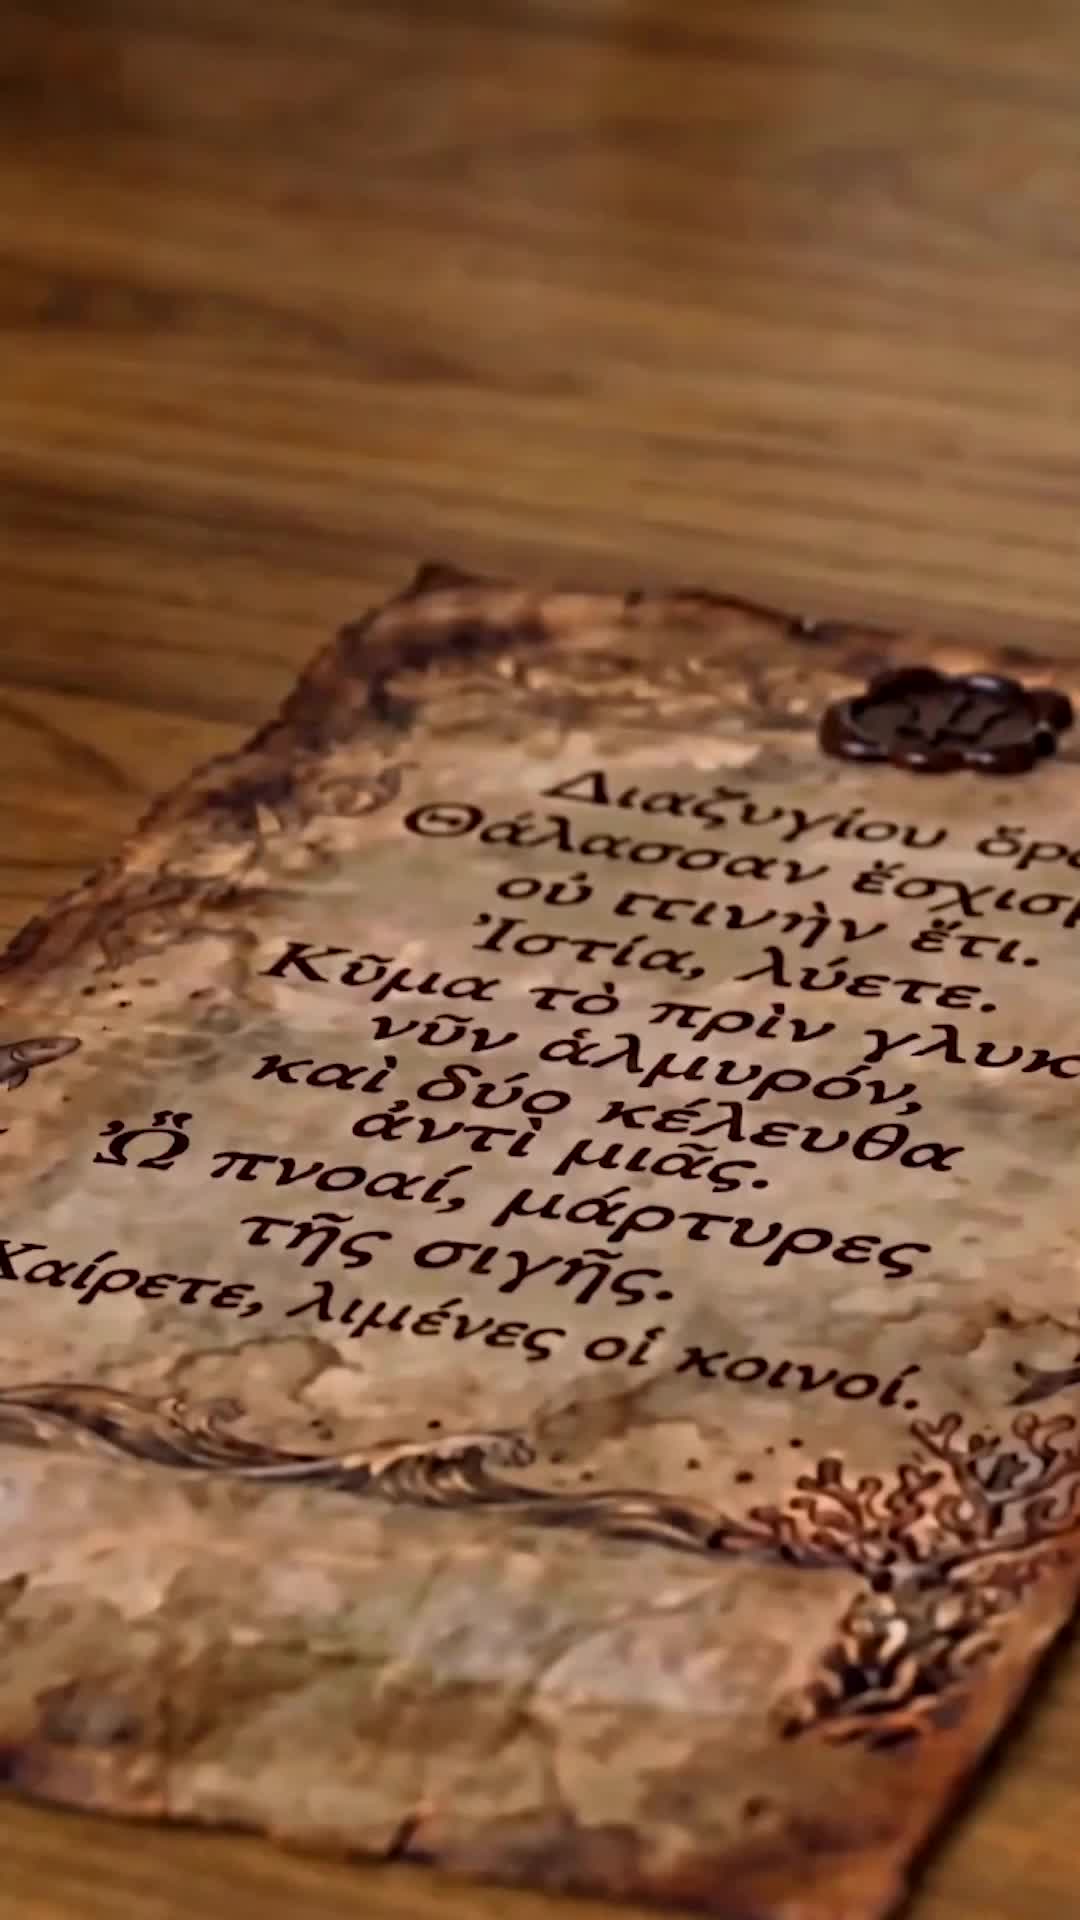 Διαζυγίου ὅρ
Θάλασσαν ἔσχισ
οὐ ττινὴν ἔτι.
Ἰστία, λύετε.
Κῦμα τὸ πρὶν γλυκ
νῦν ἁλμυρόν,
καὶ δύο κέλευθα
ἀντὶ μιᾶς.
Ὢ πνοαί, μάρτυρες
τῆς σιγῆς.
Χαίρετε, λιμένες οἱ κοινοί.